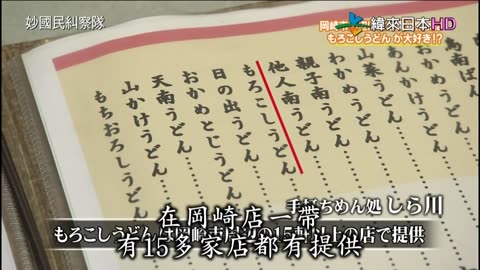 妙國民糾察隊
緯來日本HD
岡崎
もろこしうどんが大好き!?
あんかけうどん
わかめうどん
山菜うどん
親子南うどん
他人南うどん
もろこしうどん
日の出うどん
おかめとじうどん
天南うどん
山かけうどん
もちおろしうどん
手打ちめん処 しら川
在岡崎店一帶
もろこしうどんは岡崎 の15 以上の店で提供
有15多家店都有提供